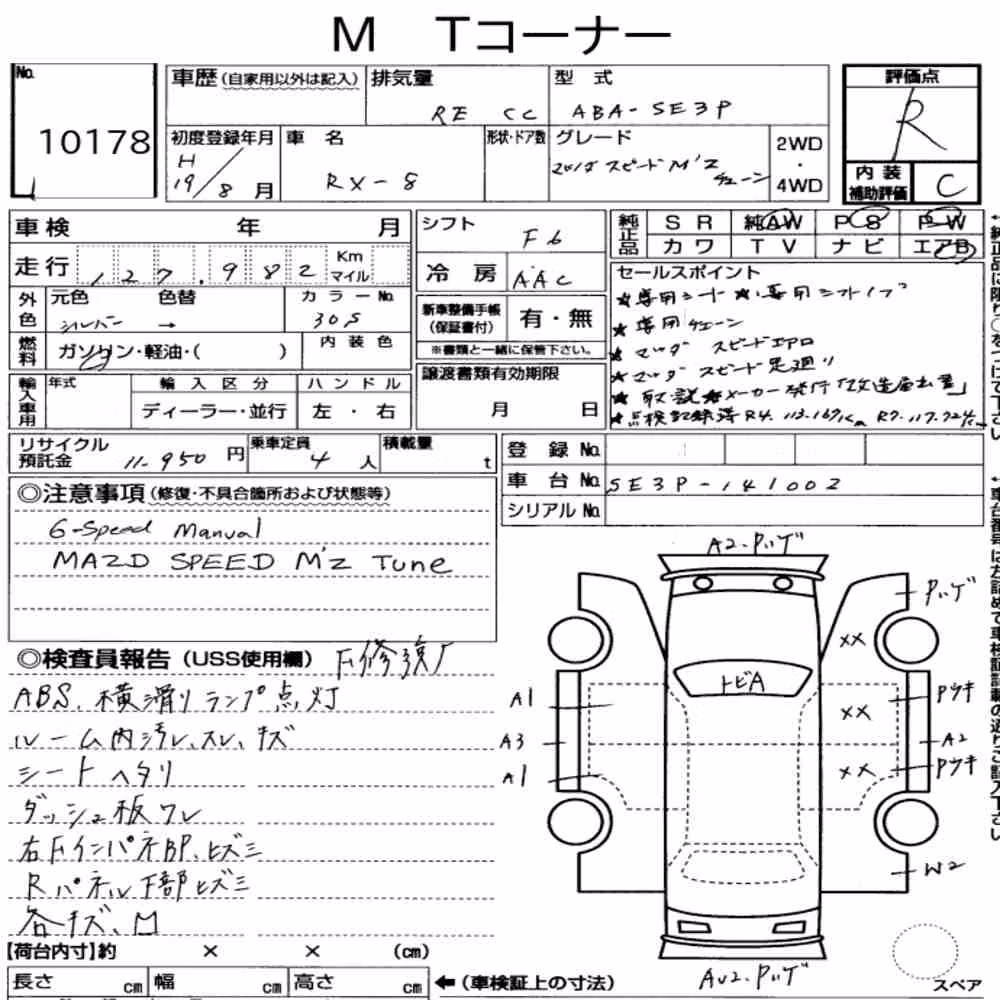 M Tコーナー
No.
10178
車歴(自家用以外は記入)
排気量
RE CC
型 式
ABA-SE3P
評価点
R
内 装
補助評価
C
初度登録年月
H
19/8月
車 名
RX-8
形状・ドア数
グレード
マツダスピード M'Z
チューン
2WD
・
4WD
車検 年 月
走行
127,982
Km
マイル
シフト
F6
冷 房
AAC
純正品
SR
純AW
PS
PW
カワ
TV
ナビ
エアB
外色
元色
シルバー
色替
→
カラーNo.
30S
燃料
ガソリン・軽油・( )
内 装 色
新車整備手帳
(保証書付)
有・無
※書類と一緒に保管下さい。
譲渡書類有効期限
月 日
輸入車用
年式
輸 入 区 分
ディーラー・並行
ハ ン ド ル
左 ・ 右
セールスポイント
★専用シート ★専用シフトノブ
★専用チューン
★マツダ スピードエアロ
★マツダ スピード足廻り
★取説 ★メーカー発行「改造届出書」
★点検記録簿 R4. 113.167km R7. 117.724km
リサイクル
預託金
11.950円
乗車定員
4人
積載量
t
登 録 No.
車 台 No.
SE3P-141002
シリアル No.
◎注意事項(修復・不具合箇所および状態等)
6-Speed Manual
MAZD SPEED M'z Tune
◎検査員報告(USS使用欄)
F修強ґ
ABS、横滑りランプ点灯
ルーム内汚レ、スレ、キズ
シートヘタリ
ダッシュ板ワレ
右FインパネBP、ヒズミ
Rパネル下部ヒズミ
各キズ、凹
A2.ハゲ
ハゲ
XX
トビA
A1
XX
Pツキ
A3
A2
A1
XX
Pツキ
W2
AU2.ハゲ
スペア
【荷台内寸】約 × × (cm)
長さ cm
幅 cm
高さ cm
←(車検証上の寸法)